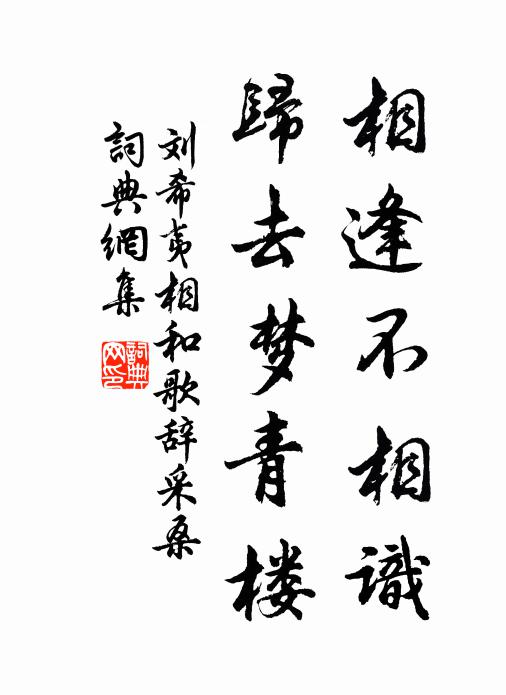 相逢不相識
歸去梦青楼
刘希夷相和歌辞采桑
詞典網集
詞典网印